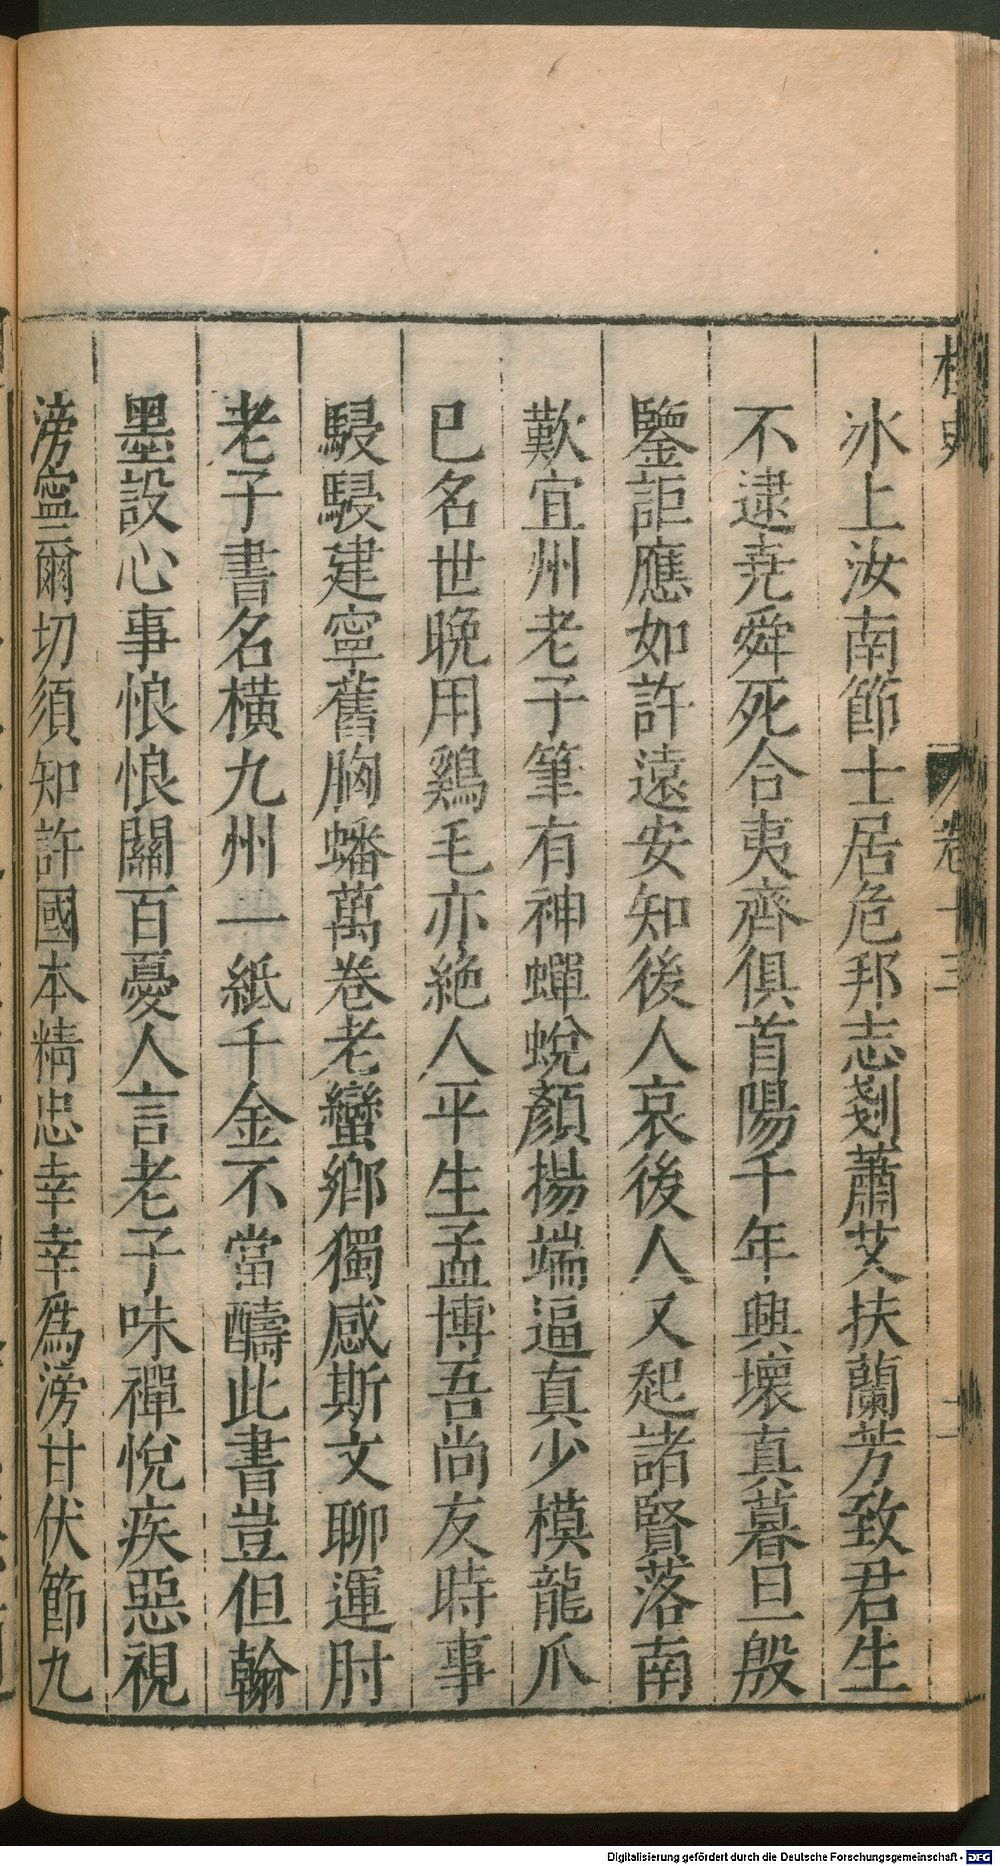 桯史
卷十三
二
氷上汝南節士居危邦志剗蕭艾扶蘭芳致君生
不逮尭舜死合夷齊俱首陽千年興壞真暮旦殷
鑒詎應如許遠安知後人哀後人又起諸賢落南
歎宜州老子筆有神蟬蛻顏揚端逼真少模龍爪
已名世晚用鷄毛亦絶人平生孟博吾尚友時事
駸駸建寧舊胸蟠萬卷老蠻鄉獨感斯文聊運肘
老子書名橫九州一紙千金不當醻此書豈但翰
墨設心事悢悢關百憂人言老子味禪悅疾惡視
滂寧爾切須知許國本精忠幸幸爲滂甘伏節九
Digitalisierung gefördert durch die Deutsche Forschungsgemeinschaft - DFG